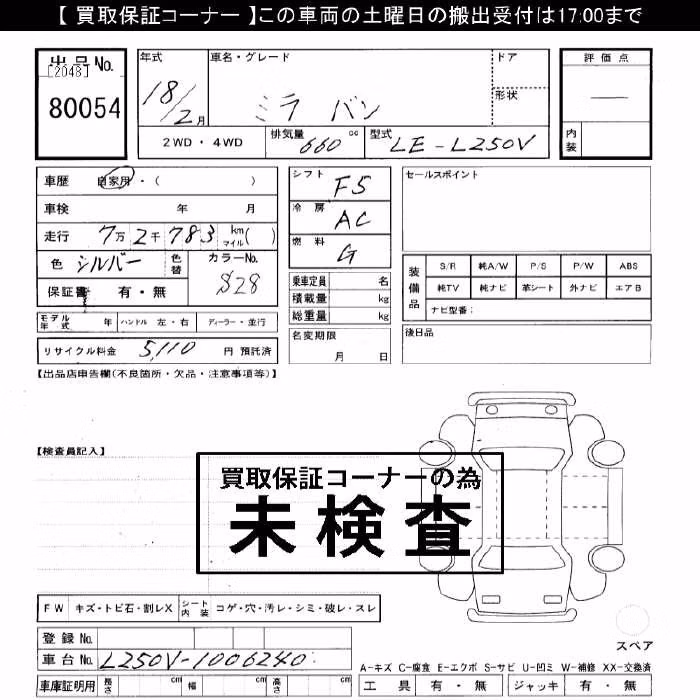 【 買取保証コーナー 】この車両の土曜日の搬出受付は17:00まで
出品No.
[2048]
80054
年式
18/2月
車名・グレード
ミラ バン
ドア
形状
評価点
—
内装
2WD・4WD
排気量 660 cc
型式 LE-L250V
車歴 自家用・( )
車検 年 月
走行 7万2千783 km マイル( )
色 シルバー 色替
カラーNo. S28
保証書 有・無
シフト F5
冷房 AC
燃料 G
乗車定員 名
積載量 kg
総重量 kg
セールスポイント
装備品
S/R 純A/W P/S P/W ABS
純TV 純ナビ 革シート 外ナビ エアB
ナビ型番:
モデル年式 年 ハンドル 左・右 ディーラー・並行
名変期限
月 日
後日品
リサイクル料金 5,110 円 預託済
【出品店申告欄(不良箇所・欠品・注意事項等)】
【検査員記入】
買取保証コーナーの為
未検査
FW キズ・トビ石・割レX シート内装 コゲ・穴・汚レ・シミ・破レ・スレ
登録No.
車台No. L250V-1006240
車庫証明用 長さ cm 幅 cm 高さ cm
スペア
A-キズ C-腐食 E-エクボ S-サビ U-凹ミ W-補修 XX-交換済
工具 有・無 ジャッキ 有・無